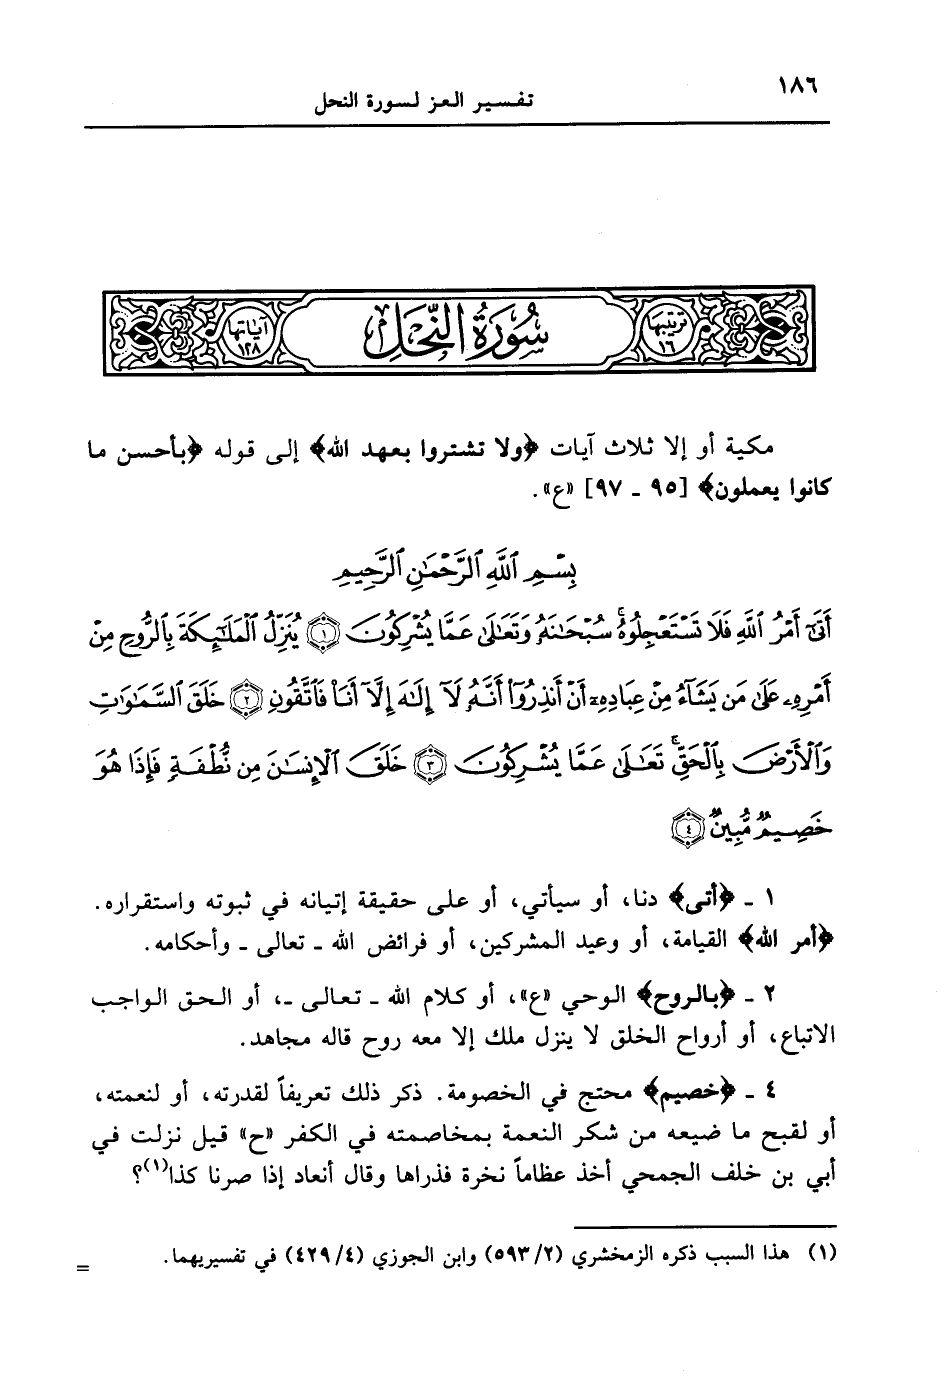 ١٨٦
تفسير العز لسورة النحل
ترتيبها ١٦
سُورَةُ النَّحل
آياتها ١٢٨
مكية أو إلا ثلاث آيات ﴿ولا تشتروا بعهد الله﴾ إلى قوله ﴿بأحسن ما
كانوا يعملون﴾ [٩٥ ـ ٩٧] «ع».
بِسْمِ ٱللَّهِ ٱلرَّحْمَٰنِ ٱلرَّحِيمِ
أَتَىٰٓ أَمْرُ ٱللَّهِ فَلَا تَسْتَعْجِلُوهُ ۚ سُبْحَٰنَهُۥ وَتَعَٰلَىٰ عَمَّا يُشْرِكُونَ ﴿١﴾ يُنَزِّلُ ٱلْمَلَٰٓئِكَةَ بِٱلرُّوحِ مِنْ
أَمْرِهِۦ عَلَىٰ مَن يَشَآءُ مِنْ عِبَادِهِۦٓ أَنْ أَنذِرُوٓا۟ أَنَّهُۥ لَآ إِلَٰهَ إِلَّآ أَنَا۠ فَٱتَّقُونِ ﴿٢﴾ خَلَقَ ٱلسَّمَٰوَٰتِ
وَٱلْأَرْضَ بِٱلْحَقِّ ۚ تَعَٰلَىٰ عَمَّا يُشْرِكُونَ ﴿٣﴾ خَلَقَ ٱلْإِنسَٰنَ مِن نُّطْفَةٍ فَإِذَا هُوَ
خَصِيمٌ مُّبِينٌ ﴿٤﴾
١ ـ ﴿أتى﴾ دنا، أو سيأتي، أو على حقيقة إتيانه في ثبوته واستقراره.
﴿أمر الله﴾ القيامة، أو وعيد المشركين، أو فرائض الله ـ تعالى ـ وأحكامه.
٢ ـ ﴿بالروح﴾ الوحي «ع»، أو كلام الله ـ تعالى ـ، أو الحق الواجب
الاتباع، أو أرواح الخلق لا ينزل ملك إلا معه روح قاله مجاهد.
٤ ـ ﴿خصيم﴾ محتج في الخصومة. ذكر ذلك تعريفاً لقدرته، أو لنعمته،
أو لقبح ما ضيعه من شكر النعمة بمخاصمته في الكفر «ح» قيل نزلت في
أبي بن خلف الجمحي أخذ عظاماً نخرة فذراها وقال أنعاد إذا صرنا كذا(١)؟
(١) هذا السبب ذكره الزمخشري (٥٩٣/٢) وابن الجوزي (٤٢٩/٤) في تفسيريهما.
=